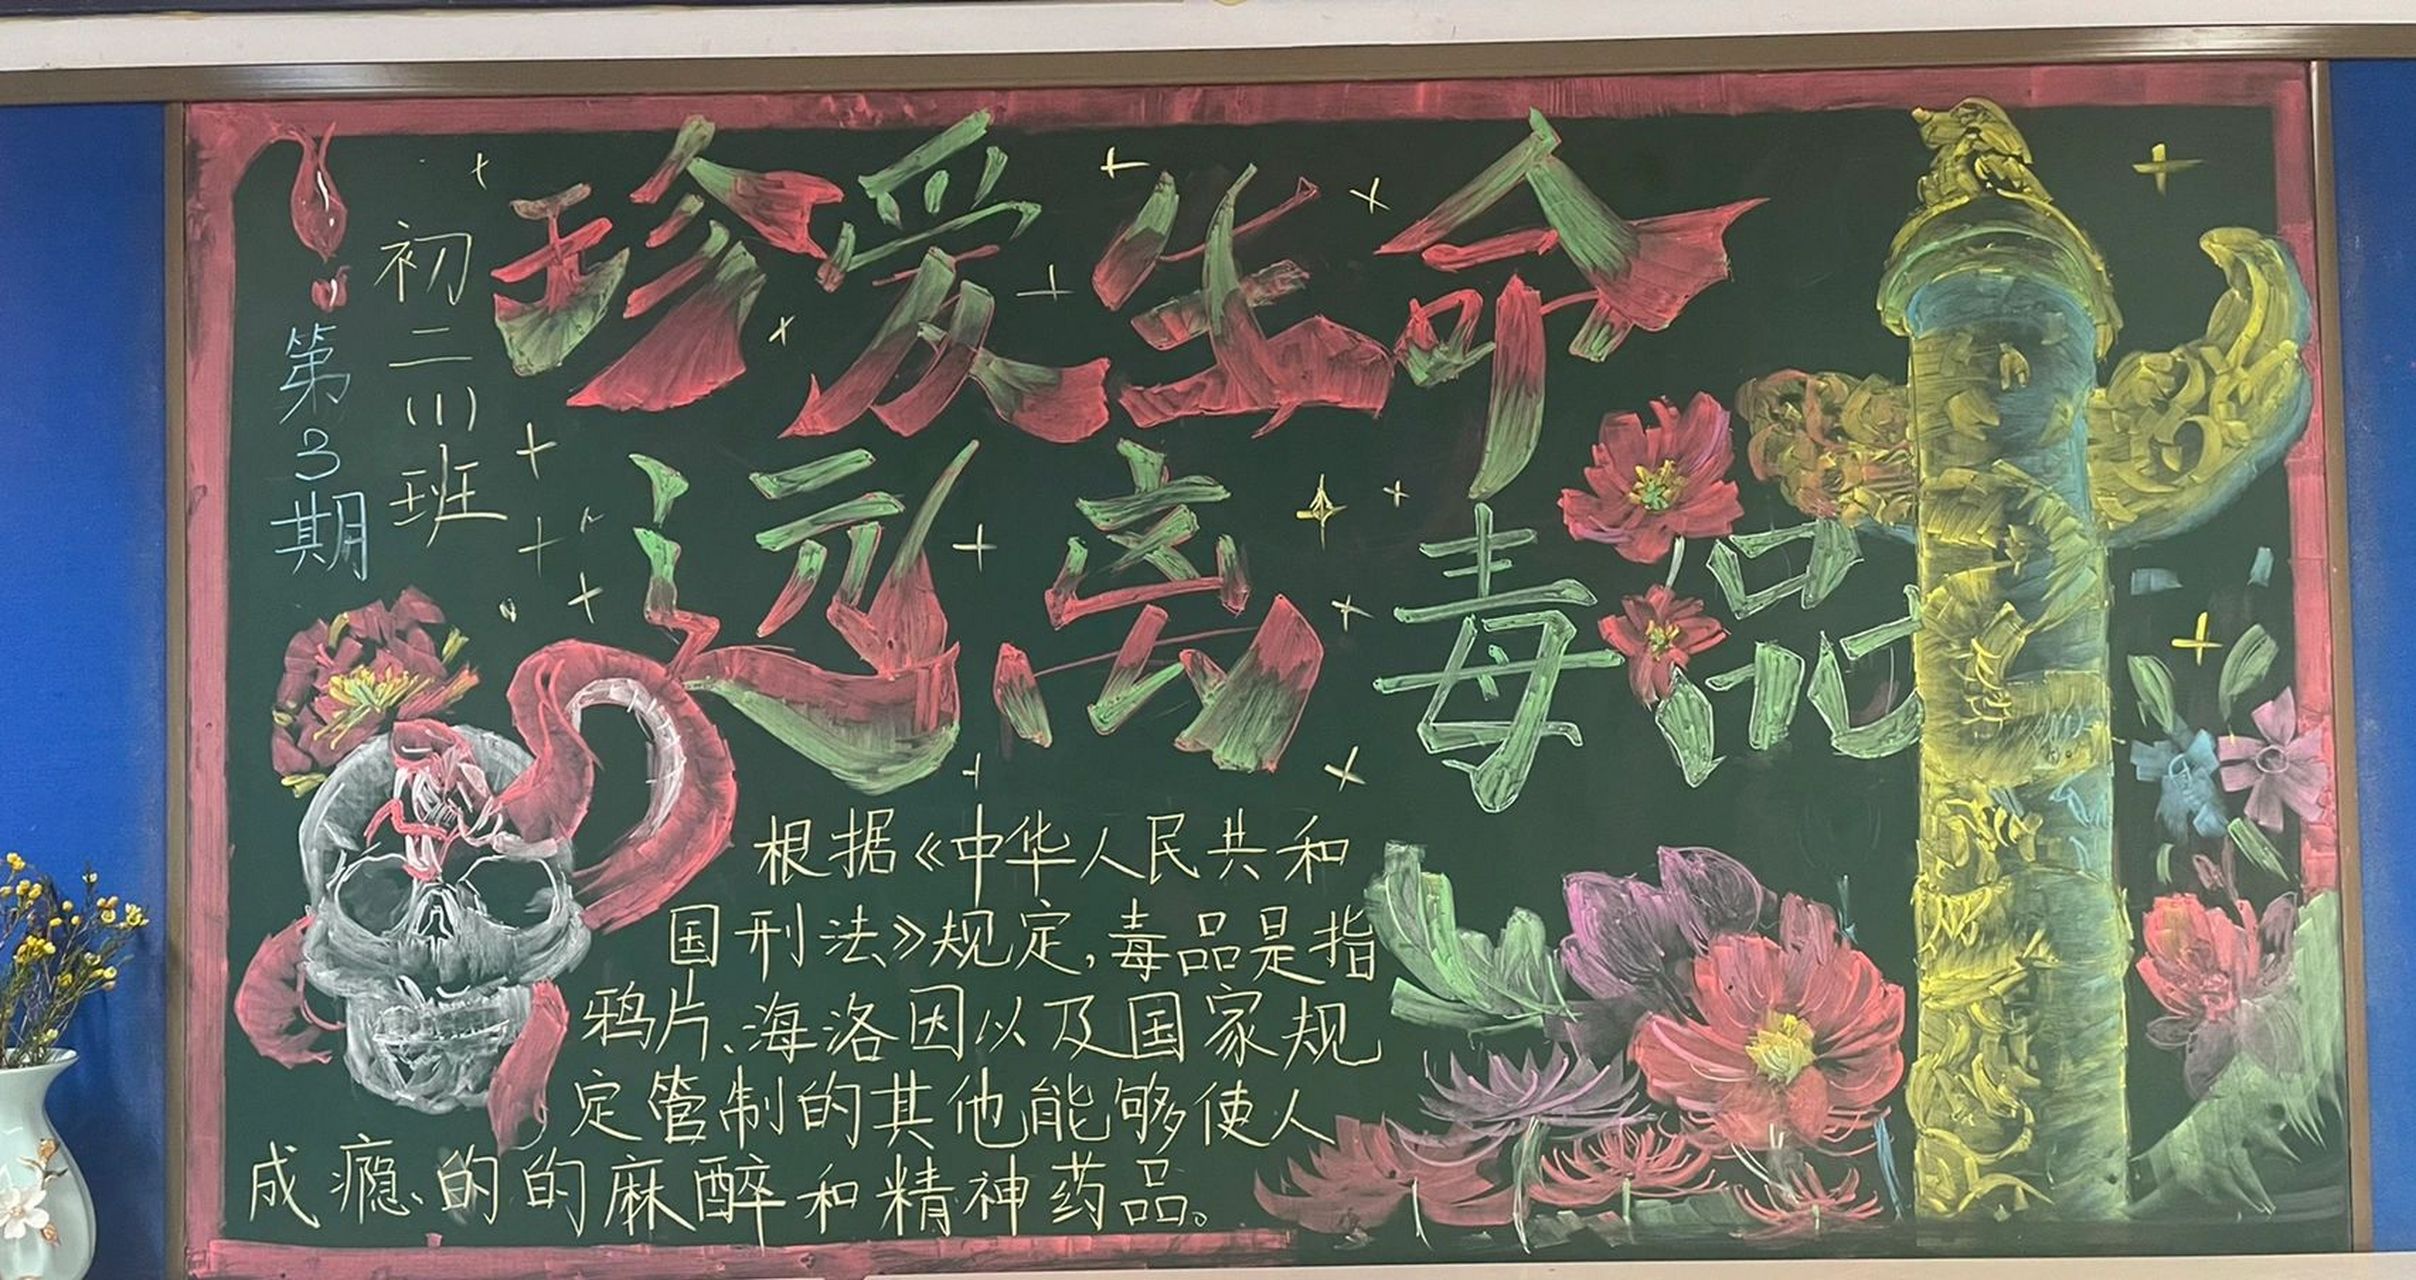 珍爱生命
远离毒品
初二(1)班
第3期
根据《中华人民共和
国刑法》规定,毒品是指
鸦片、海洛因以及国家规
定管制的其他能够使人
成瘾、的的麻醉和精神药品。